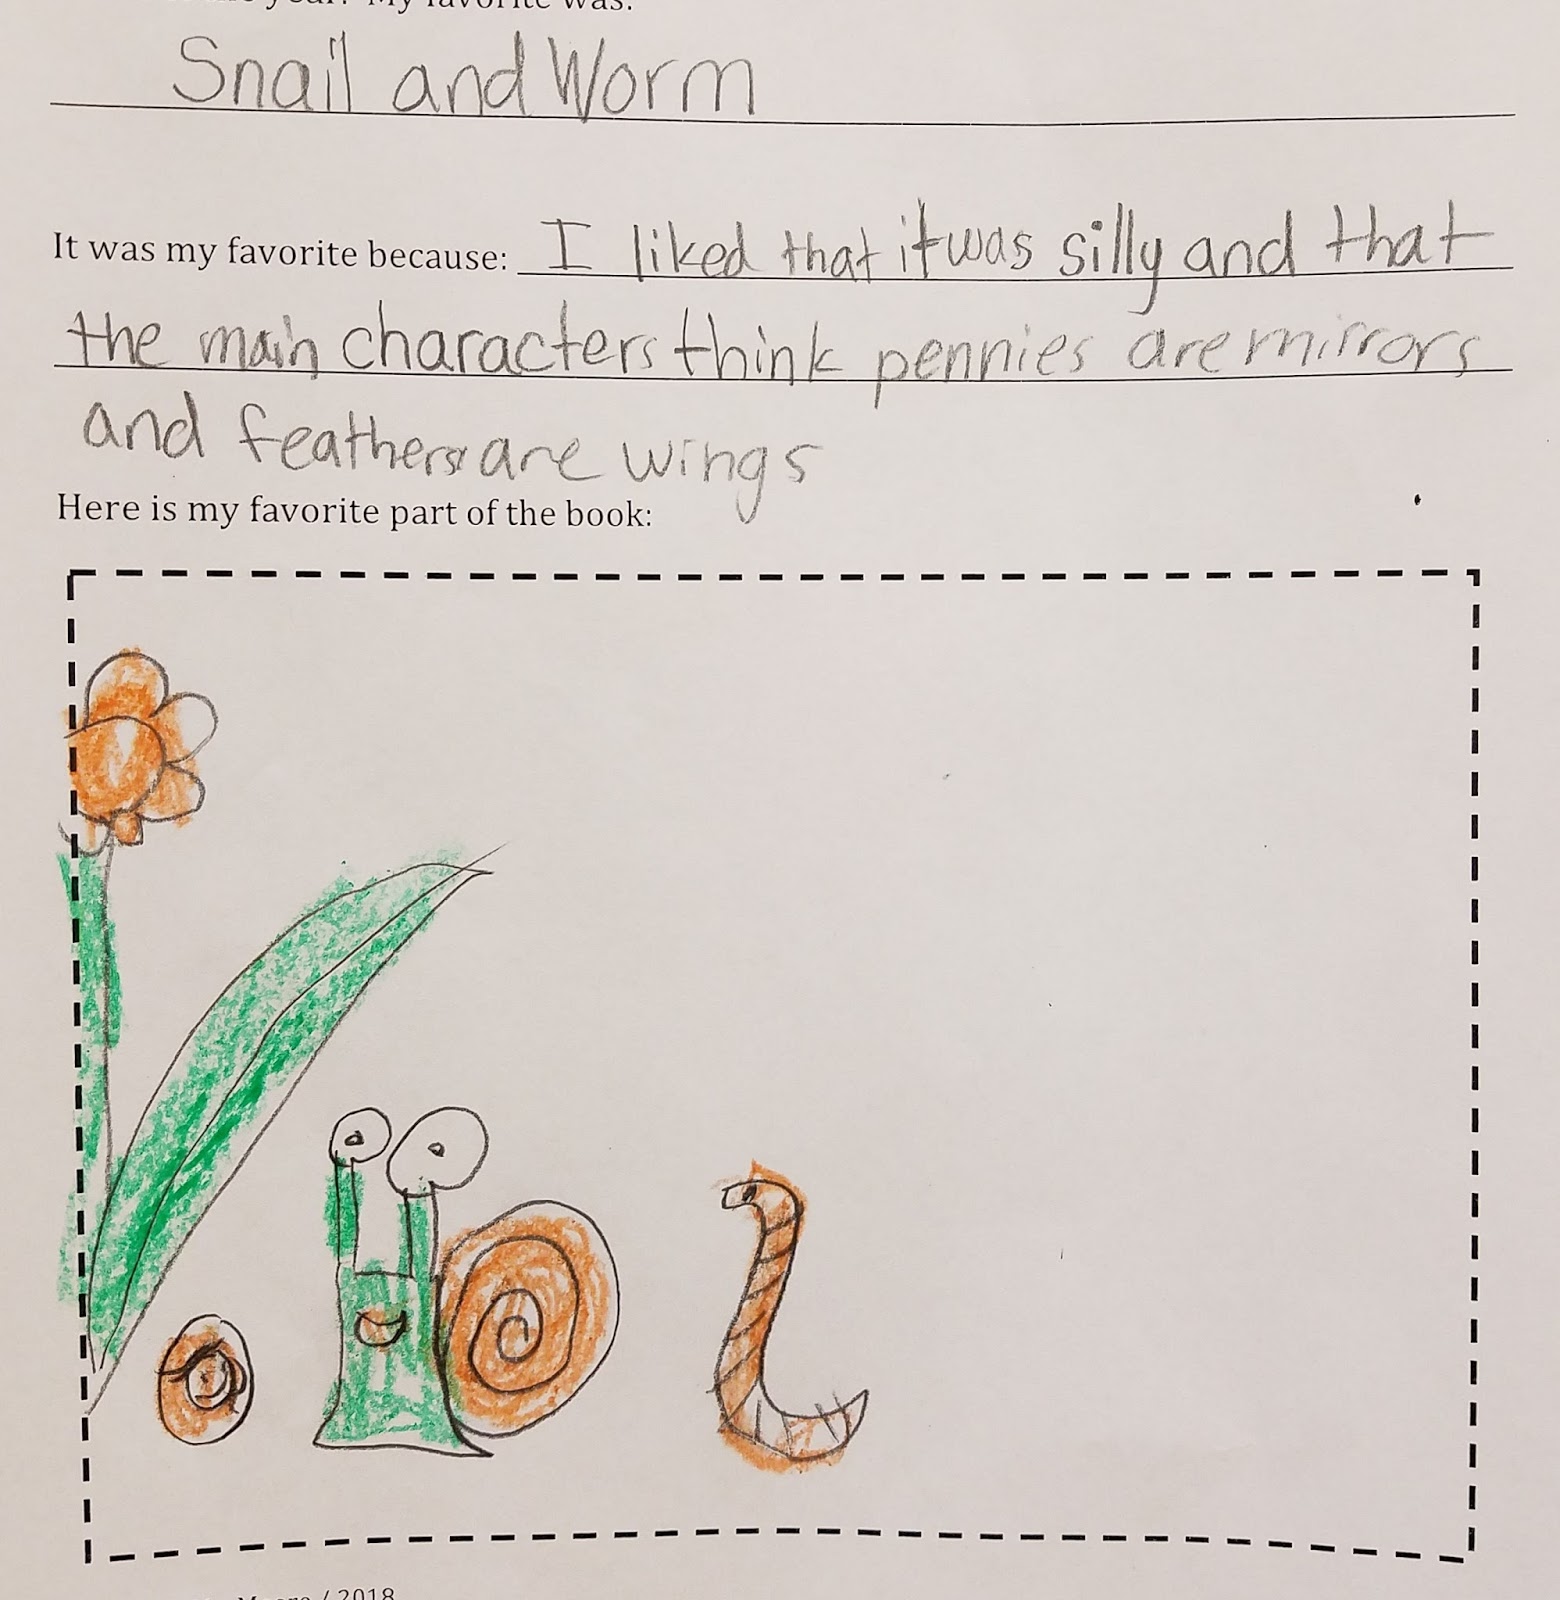 year? My favorite was:
Snail and Worm
It was my favorite because: I liked that it was silly and that
the main characters think pennies are mirrors
and feathers are wings
Here is my favorite part of the book:
/ 2018